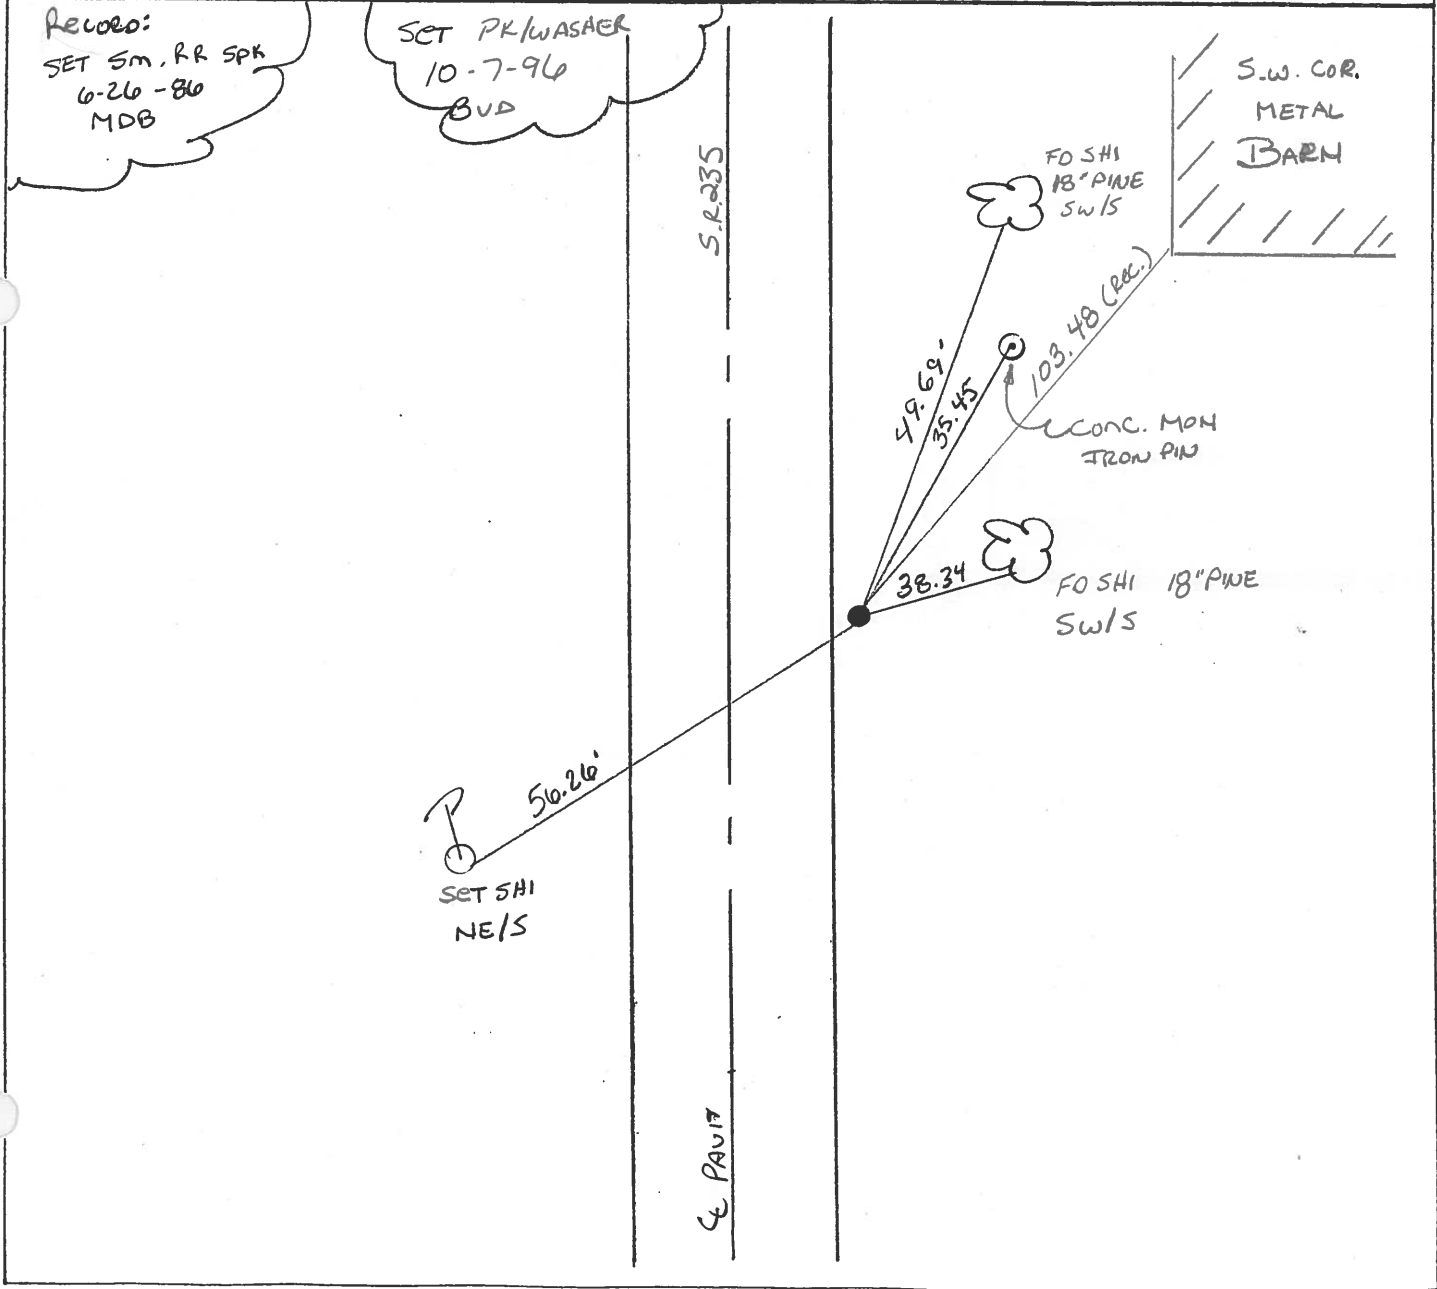 RECORD:
SET SM. RR SPK
6-26-86
MDB
SET PK/WASHER
10-7-96
BUD
S.R.235
S.W. COR.
METAL
BARN
FD SHI
18" PINE
SW/S
49.69'
35.45
103.48 (REC.)
CONC. MON
IRON PIN
38.34
FD SHI 18" PINE
SW/S
56.26'
SET SHI
NE/S
℄ PAVM'T